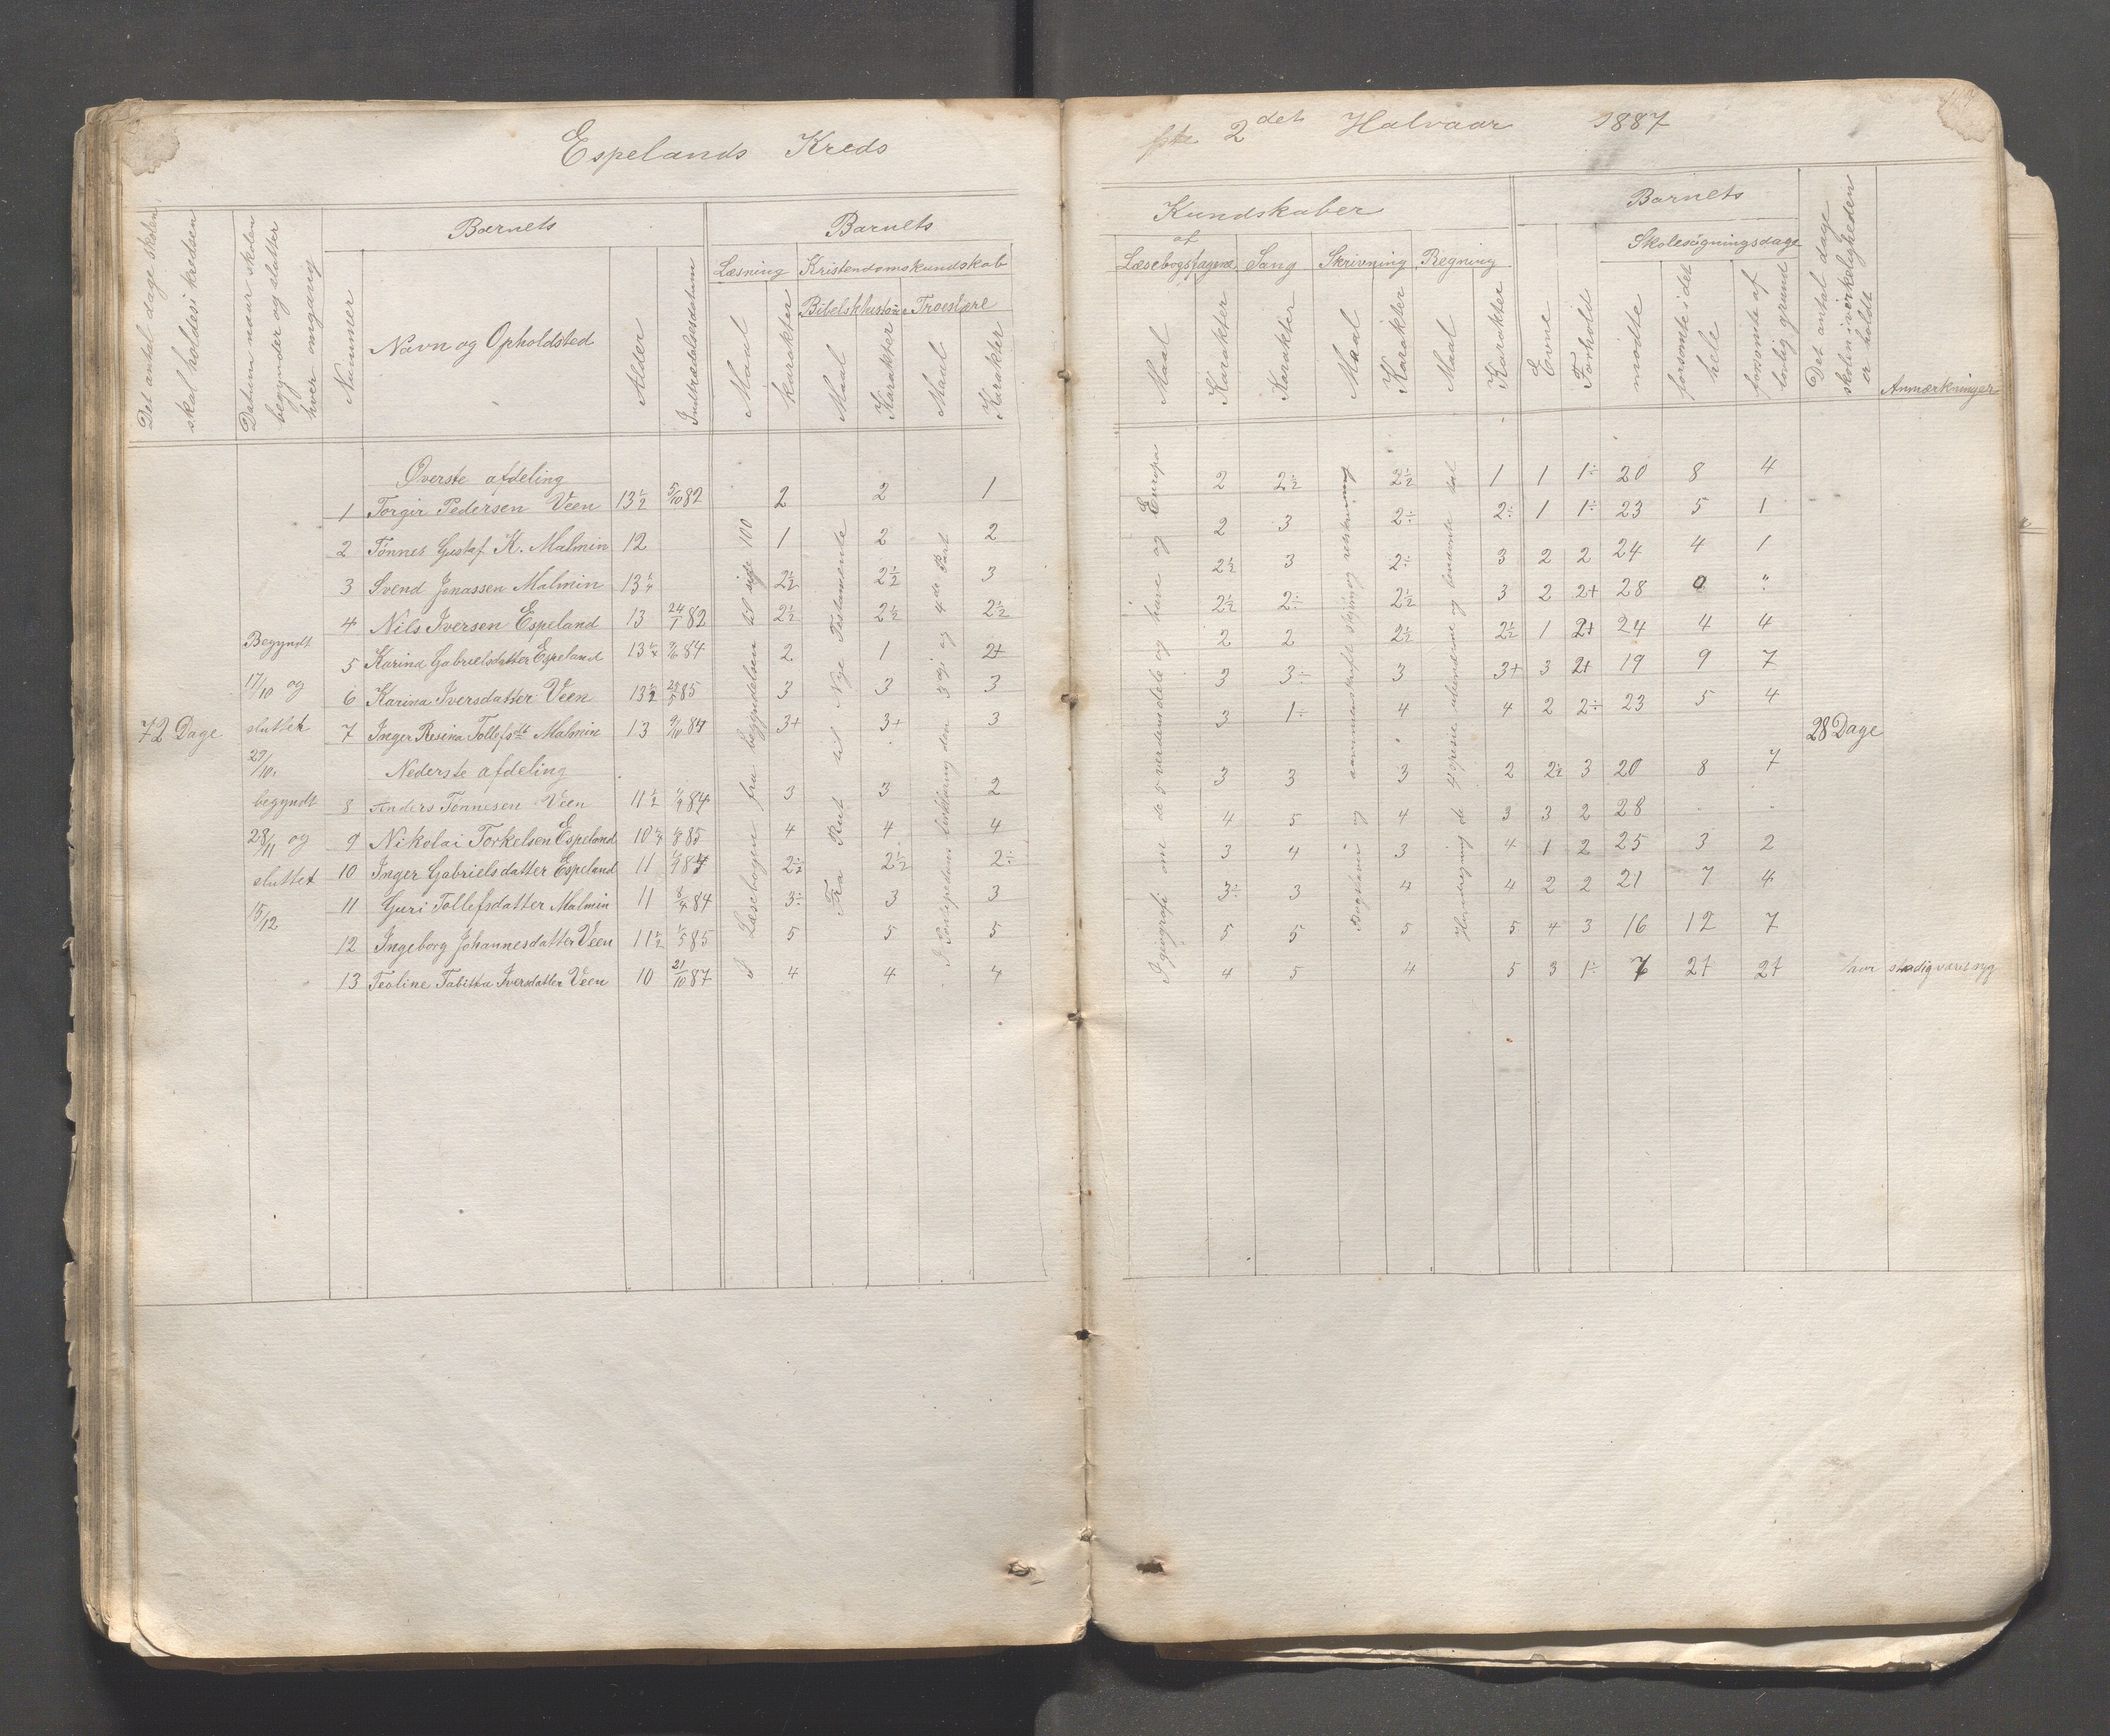 Espelands Kreds
Det antal dage skolen skal holdes i kredsen
Datum naar skolen begynder og slutter hver omgang
Barnets
Nummer
Navn og Opholdsted
Alder
Indtrædelsesdatum
Barnets
Læsning
Maal
Karakter
Kristendomskundskab
Bibelskhistorie
Maal
Karakter
Troeslære
Maal
Karakter
72 Dage
Begyndt
17/10 og
sluttet
29/10.
begyndt
28/11 og
sluttet
15/12
Øverste afdeling
1 Torgir Pedersen Veen 13½ 5/10 82 2 2 1
2 Tönnes Gustaf K. Malmin 12 1 2 2
3 Svend Jonassen Malmin 13¼ 2½ 2½ 3
4 Nils Iversen Espeland 13 24/1 82 2½ 2½ 2½
5 Karina Gabrielsdatter Espeland 13¼ 84 2 1 2+
6 Karina Iversdatter Veen 13½ 85 3 3 3
7 Inger Resina Tollefsdt Malmin 13 9/10 84 3+ 3+ 3
Nederste afdeling
8 Anders Tönnesen Veen 11½ 84 3 3 2
9 Nikolai Torkelsen Espeland 10¼ 85 4 4 4
10 Inger Gabrielsdatter Espeland 11 84 2½ 2½ 2÷
11 Guri Tollefsdatter Malmin 11 84 3÷ 3 3
12 Ingeborg Johannesdatter Veen 11½ 1/5 85 5 5 5
13 Teoline Tabitha Iversdatter Veen 10 21/10 87 4 4 4
I Læsebogen fra begyndelsen til side 100
Fra Rut til Nye Testamente
I Pontopidans forklaring den 3die og 4de Part
2det Halvaar 1887
Kundskaber
af
Læsebogsfagene
Maal
Karakter
Sang
Karakter
Skrivning
Maal
Karakter
Regning
Maal
Karakter
Barnets
Evne
Forhold
Skolesögningsdage
mödte
forsömte i det hele
forsömte af lovlig grund
Det antal dage skolen i virkeligheden er holdt
Anmærkninger
I geografi om de 5 verdensdele og have og Europa
Bogstaver og sammenskrift skjön og retskrivning
Hovedregning de 4 species ubenævnte og benævnte tal
2 2½ 2½ 1 1 1÷ 20 8 4
2 3 2÷ 2÷ 1 1÷ 23 5 1
2½ 3 2÷ 3 2 2 24 4 1
2½ 2÷ 2½ 3 2 2+ 28 0 "
2 2 2½ 2½ 1 2+ 24 4 4
3 3÷ 3 3+ 3 2+ 19 9 7
3 1÷ 4 4 2 2÷ 23 5 4
28 Dage
3 3 3 2 2½ 3 20 8 7
4 5 4 3 3 2 28 . .
3 4 3 4 1 2 25 3 2
3÷ 3 4 4 2 2 21 7 4
5 5 5 5 4 3 16 12 7
4 5 4 5 3 1÷ 7 21 21 har stadig været syg